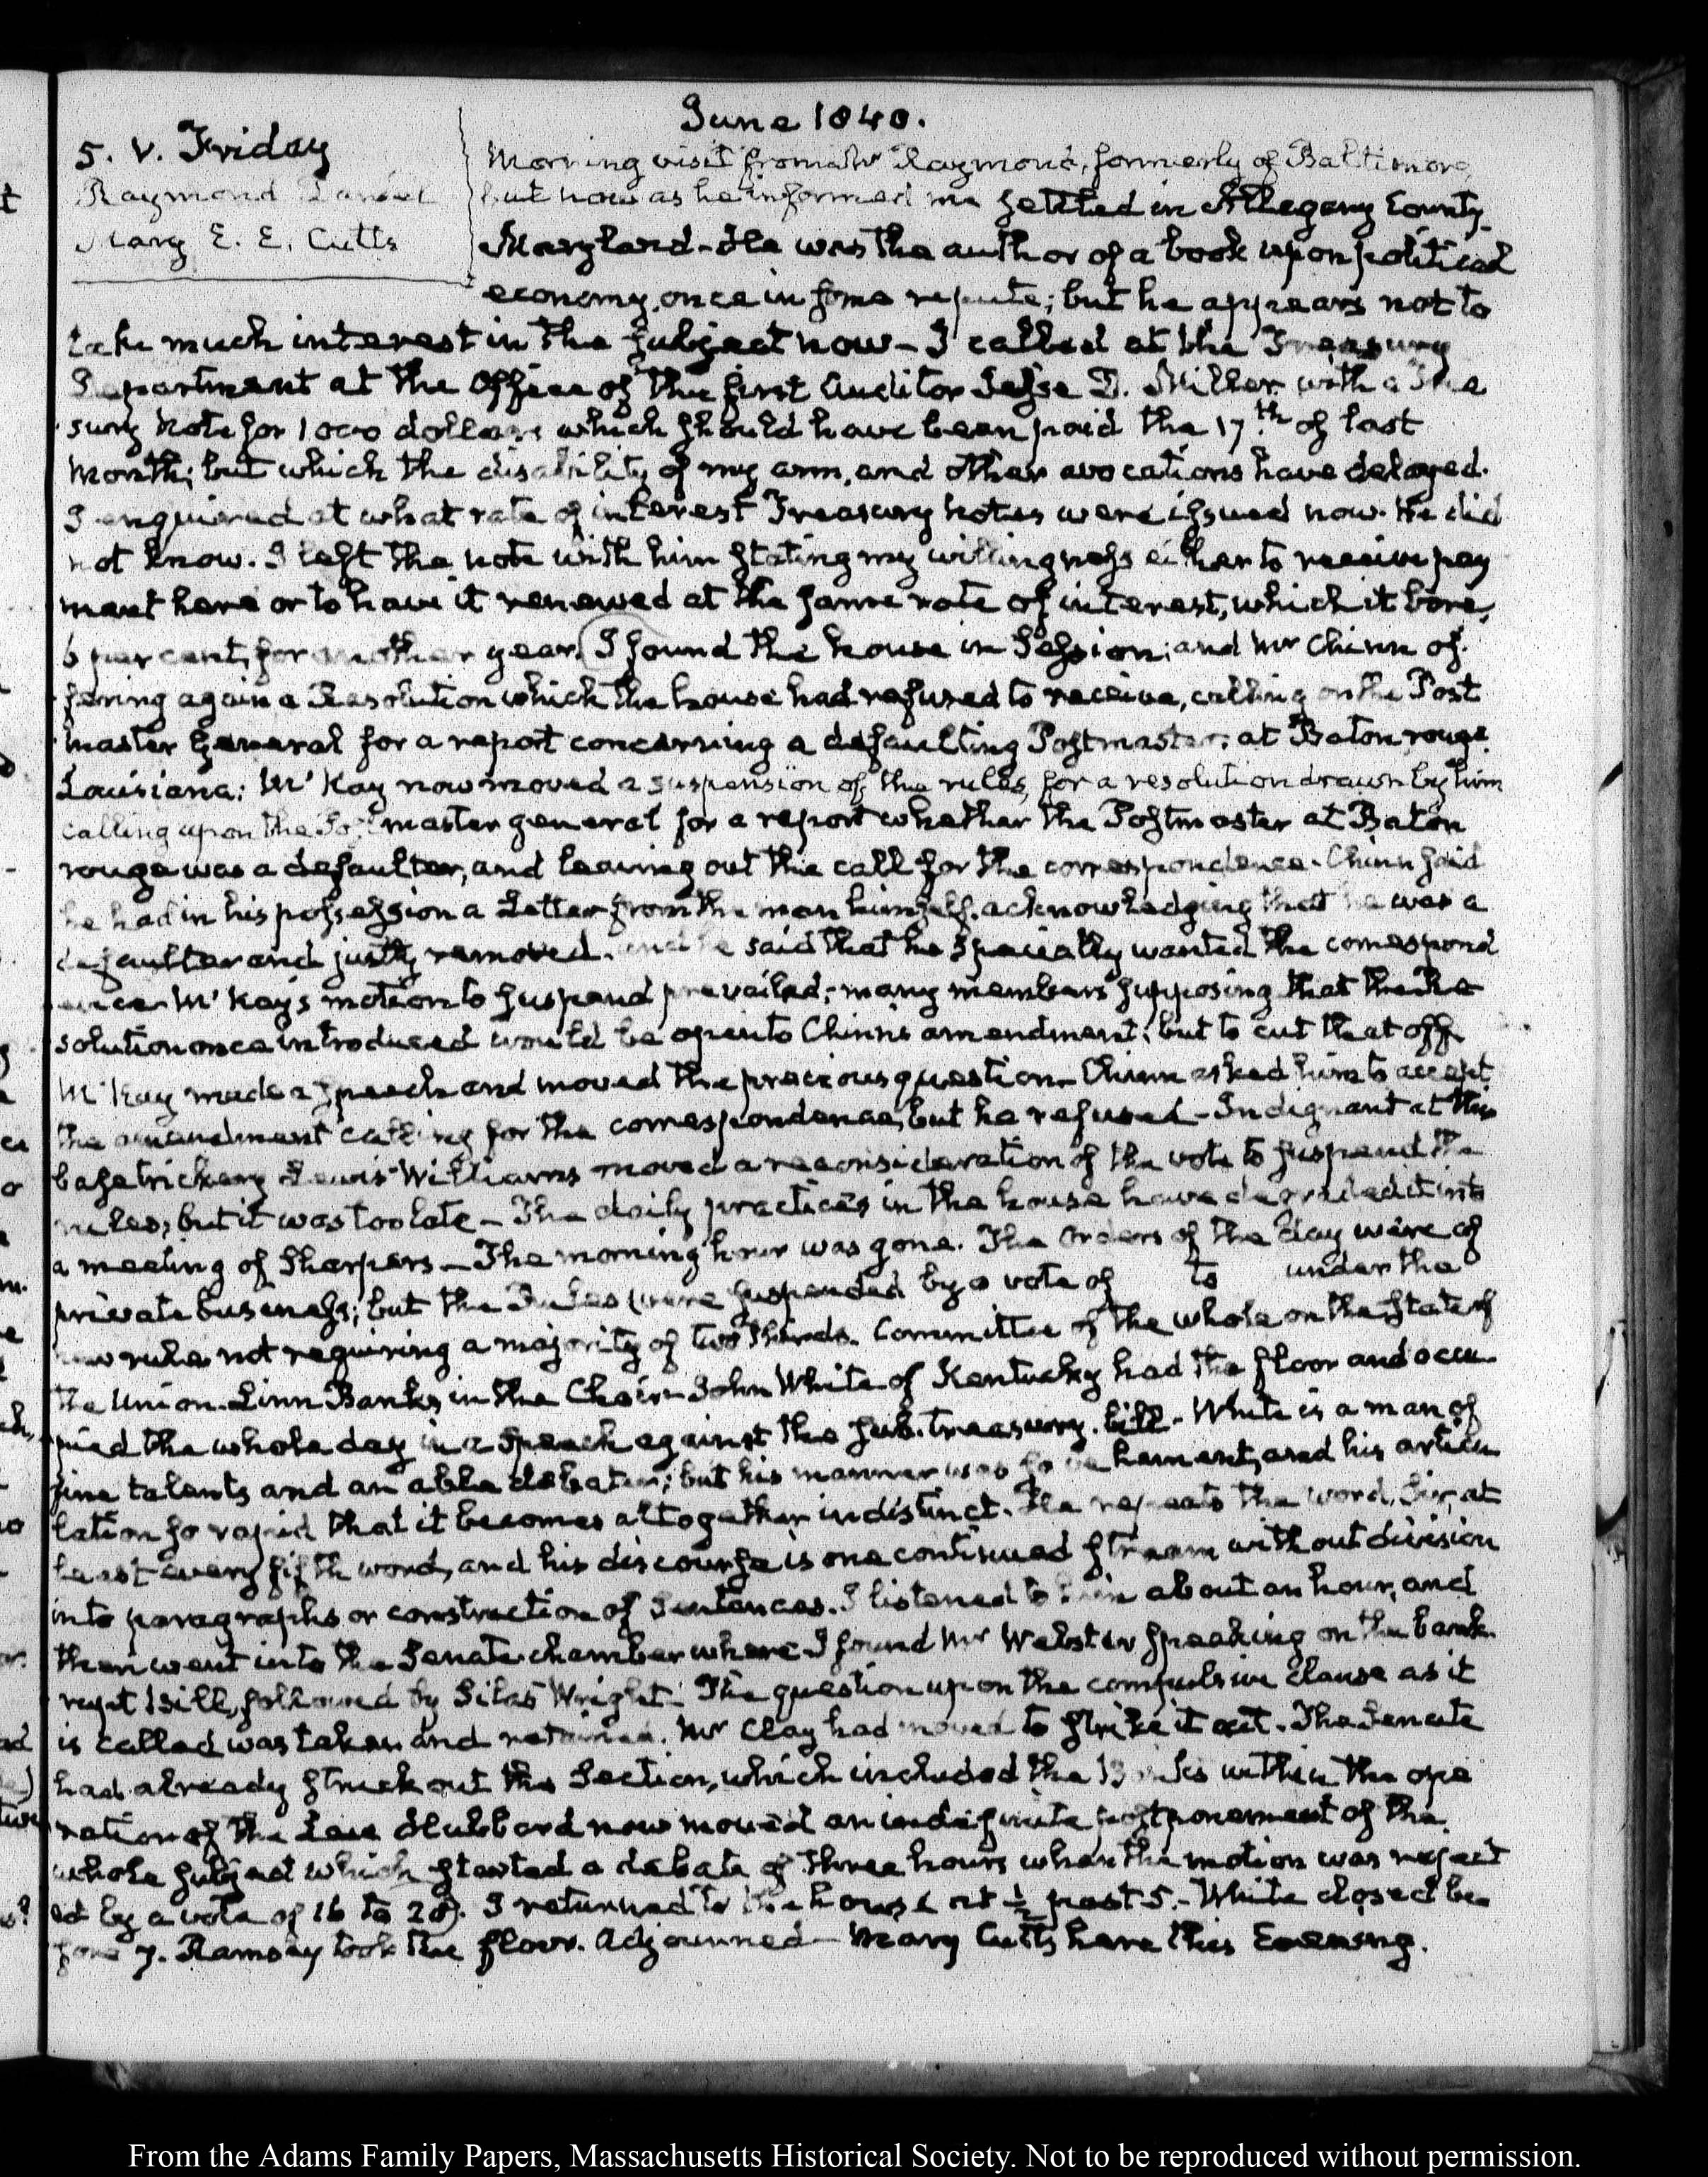 June 1840.
5. V. Friday
Raymond Daniel
Mary E. E. Cutts
Morning visit from Mr Raymond, formerly of Baltimore,
but now as he informed me settled in Allegany County
Maryland - He was the author of a book upon political
economy, once in some repute; but he appears not to
take much interest in the subject now - I called at the Treasury
Department at the Office of the first Auditor Jesse D. Miller with a Trea
sury Note for 1000 dollars which should have been paid the 17th of last
Month; but which the disability of my arm, and other avocations have delayed.
I enquired at what rate of interest Treasury notes were issued now. He did
not know. I left the note with him stating my willingness either to receive pay
ment here or to have it renewed at the same rate of interest, which it bore,
6 per cent, for another year. I found the house in Session; and Mr Chinn of
fering again a Resolution which the house had refused to receive, calling on the Post
master General for a report concerning a defaulting Postmaster, at Baton rouge
Louisiana: McKay now moved a suspension of the rules, for a resolution drawn by him
calling upon the Postmaster general for a report whether the Postmaster at Baton
rouge was a defaulter, and leaving out the call for the correspondence. Chinn said
he had in his possession a Letter from the man himself, acknowledging that he was a
defaulter and justly removed. and he said that he specially wanted the correspond
ence. McKay's motion to suspend prevailed; many members supposing that the Re
solution once introduced would be open to Chinn's amendment; but to cut that off
McKay made a speech and moved the previous question. Chinn asked him to accept
the amendment calling for the correspondence, but he refused - Indignant at this
base trickery Lewis Williams moved a reconsideration of the vote to suspend the
rules, but it was too late - The daily practices in the house have degraded it into
a meeting of Sharpers - The morning hour was gone. The Orders of the day were of
private business; but the Rules were suspended by a vote of to under the
new rule not requiring a majority of two thirds. Committee of the whole on the State of
the Union. Linn Banks in the Chair. John White of Kentucky had the floor and occu
pied the whole day in a Speech against the Sub. treasury. bill - White is a man of
fine talents and an able debater; but his manner was so vehement, and his articu
lation so rapid that it becomes altogether indistinct. He repeats the word, Sir, at
least every fifth word, and his discourse is one continued stream without division
into paragraphs or construction of Sentences. I listened to him about an hour, and
then went into the Senate chamber where I found Mr Webster speaking on the bank
rupt Bill, followed by Silas Wright. The question upon the compulsive clause as it
is called was taken and retained. Mr Clay had moved to strike it out. The Senate
had already struck out the Section, which included the Banks within the ope
ration of the Law Hubbard now moved an indefinite postponement of the
whole subject which started a debate of three hours when the motion was reject
ed by a vote of 16 to I returned to the house at ½ past 5. - White closed be
fore 7. Ramsay took the floor. Adjourned - Mary Cutts here this Evening.
From the Adams Family Papers, Massachusetts Historical Society. Not to be reproduced without permission.